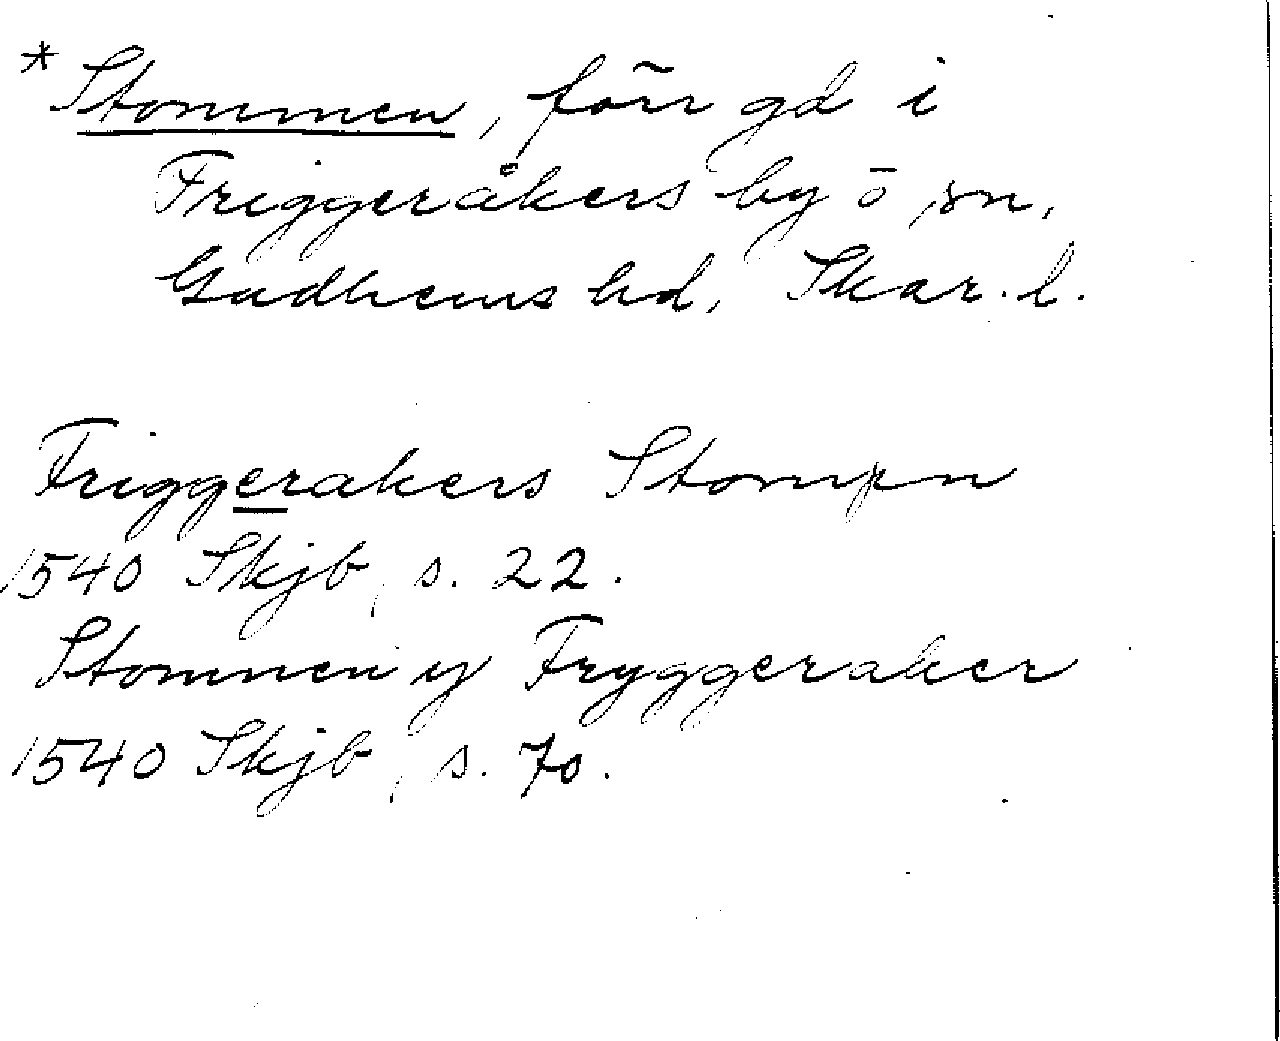 *Stommen, förr gd i
Friggeråkers by o sn,
Gudhems hd, Skar. l.
Friggerakers Stompn
1540 Skjb, s. 22.
Stommen y Fryggeraker
1540 Skjb, s. 70.